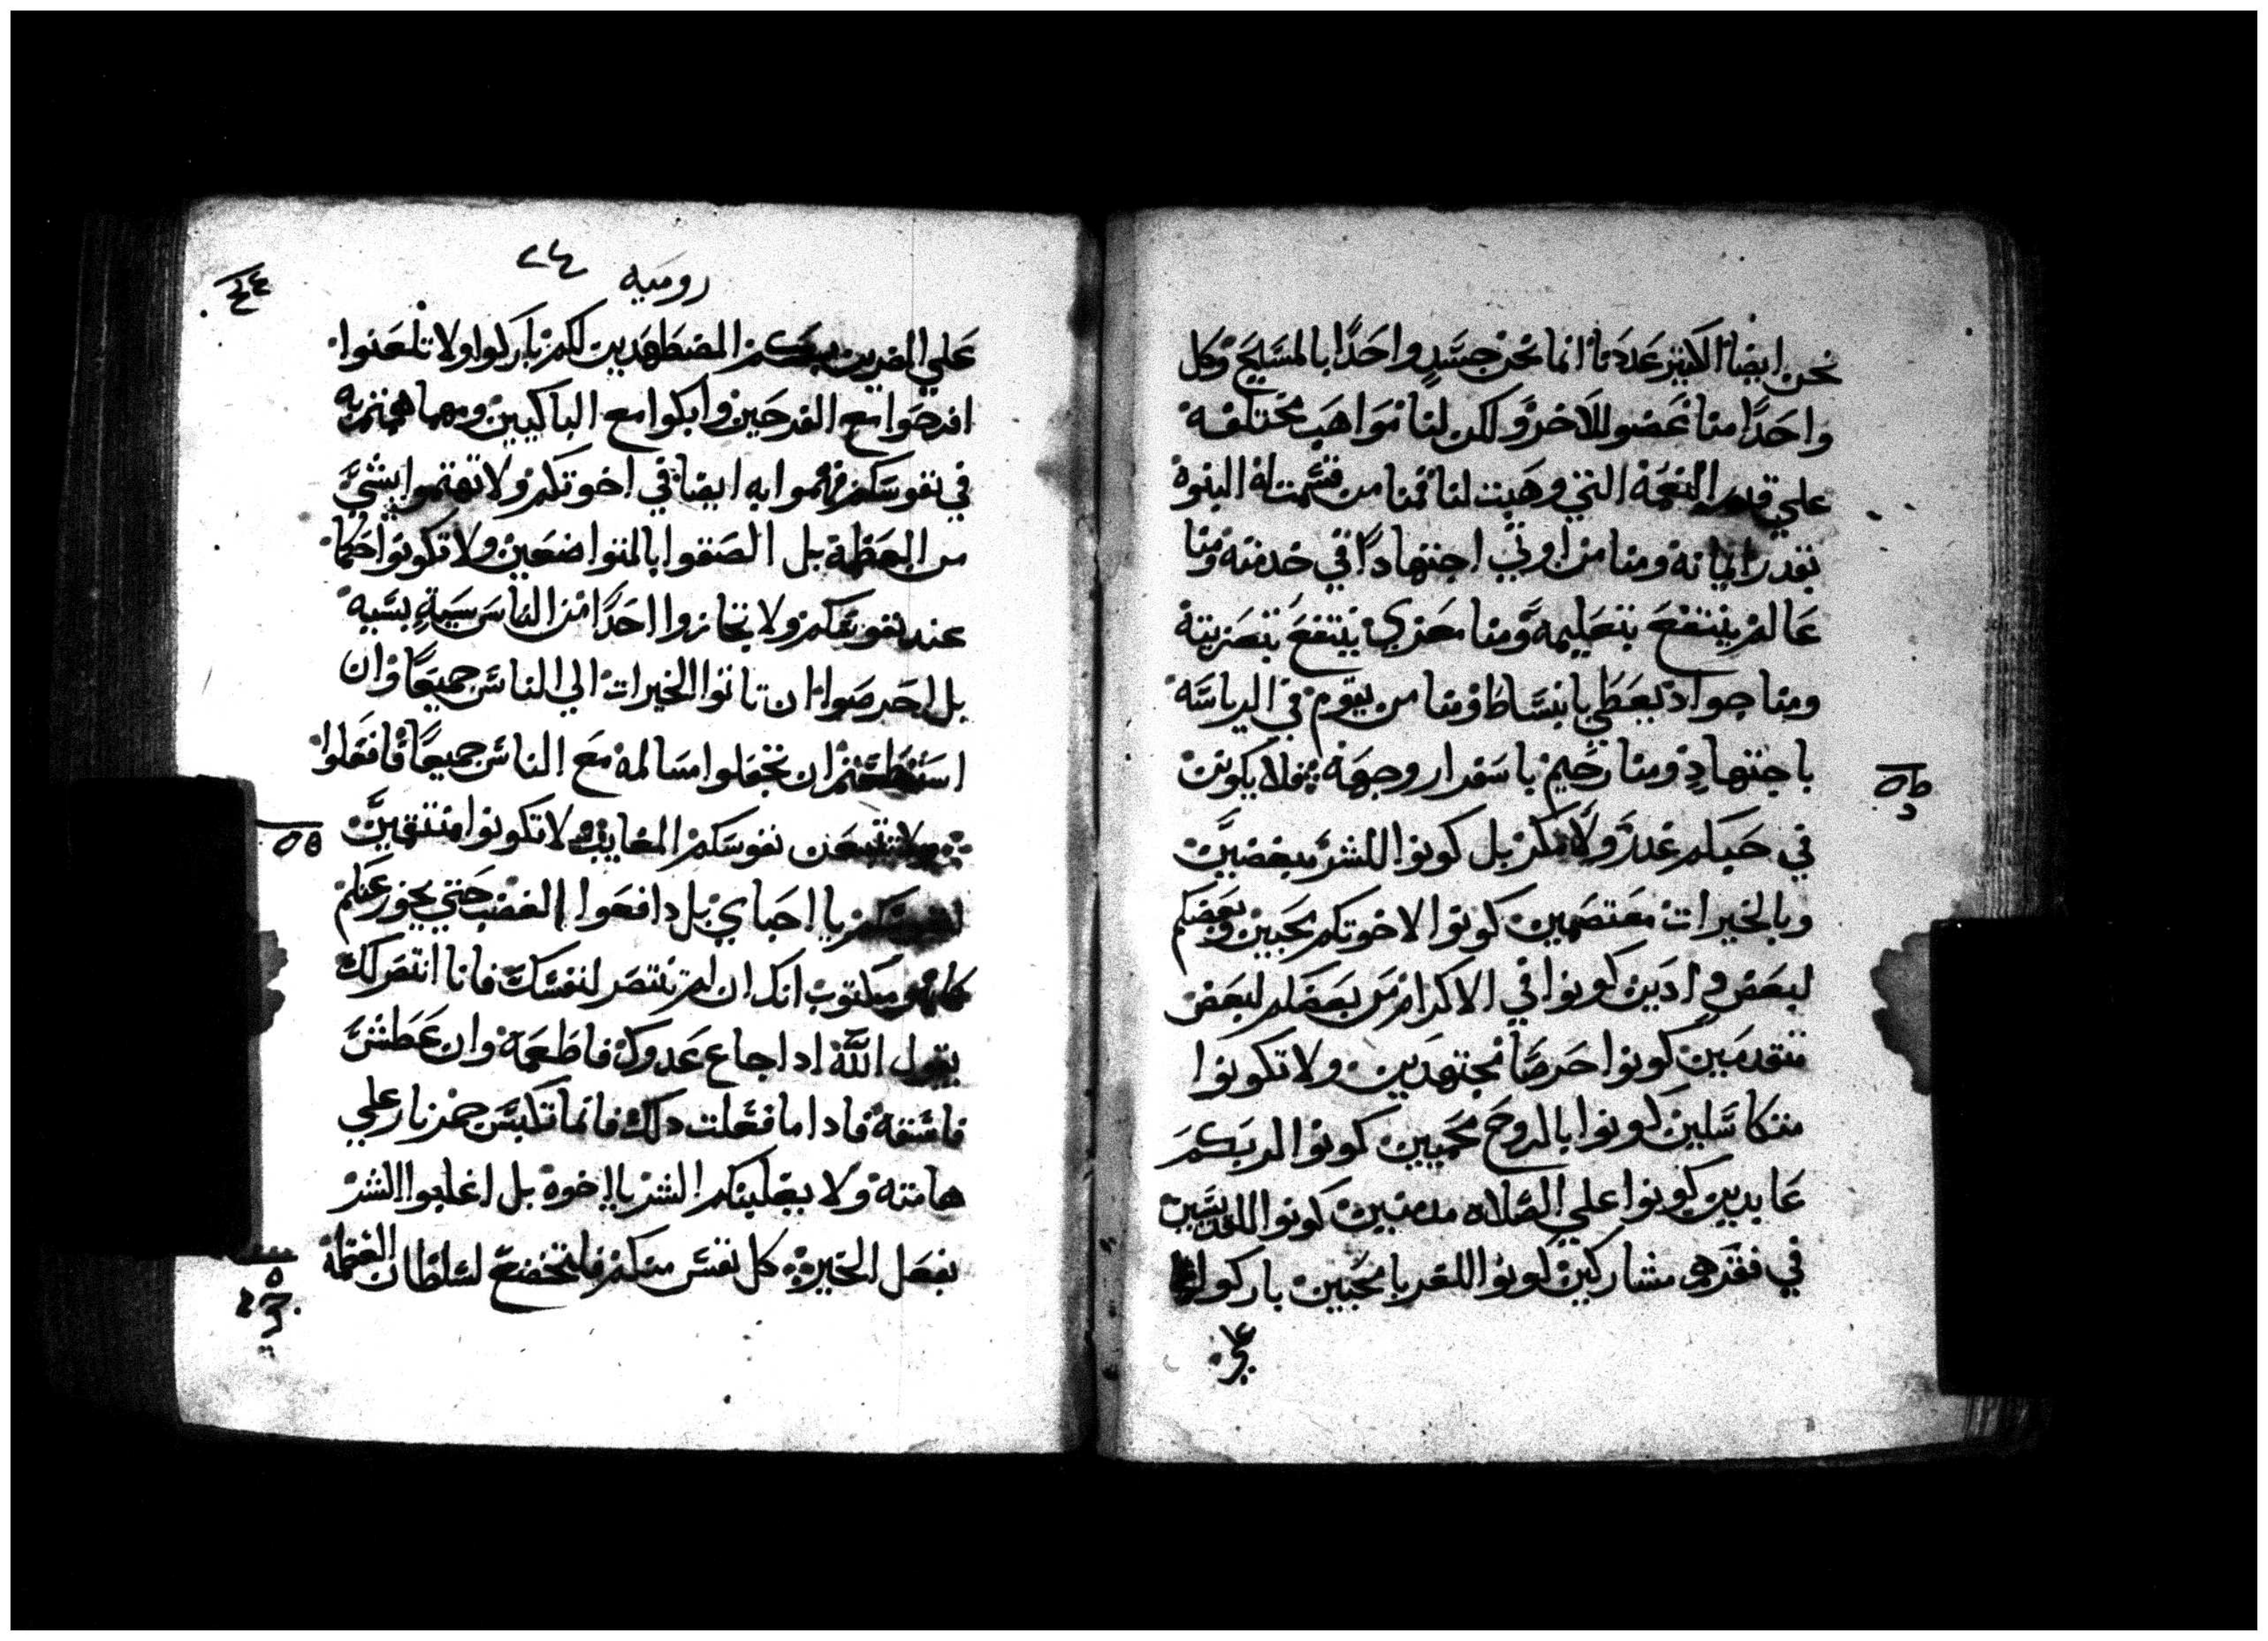 نحن ايضا الاكثير عددنا انما نحن جسدٍ واحدًا بالمسيح وكل
واحدًا منا عضو للاخر ولكن لنا مواهب مختلفه
علي قدر النعمة التي وهبت لنا فمنا من قسمت له النبوه
بقدر ايمانه ومنا من اوتي اجتهادًا في خدمته ومنا
عالم ينتفع بتعليمه ومنا معزي ينتفع بتعزيته
ومنا جواد يعطي بانبساط ومنا من يقوم في الرياسه
باجتهادٍ ومنا رحيم باسفرار وجهه فلا يكونن
في حبكم غدر ولا مكر بل كونوا للشر مبغضين
وبالخيرات معتصمين كونوا لاخوتكم محبين وبعضكم
لبعض وادين كونوا في الاكرام من بعضكم لبعض
متقدمين كونوا حرصًا مجتهدين ولا تكونوا
متكاسلين كونوا بالروح محميين كونوا لربكم
عابدين كونوا علي الصلاه مدمنين كونوا للقديسين
في فقرهم مشاركين كونوا للغربا محبين باركوا
علي
روميه ٢٤
علي الذين المضطهدين لكم باركوا ولا تلعنوا
افرحوا مع الفرحين وابكوا مع الباكيين ومهما هممتم به
في نفوسكم فهموا به ايضا في اخوتكم ولا تهتموا بشي
من العظمة بل الصقوا بالمتواضعين ولا تكونوا حكما
عند نفوسكم ولا تجازوا احدًا من الناس سيةٍ بسيه
بل احرصوا ان تاتوا الخيرات الي الناس جميعًا وان
استطعتم ان تجعلوا مسالمه مع الناس جميعًا فافعلوا
ولا تتبعن نفوسكم المغايب لا تكونوا منتقمين
يا احباي بل دافعوا الغضب حتي يجوز عنكم
مكتوب انك ان لم تنتصر لنفسك فانا انتصر لك
يقول الله ادا جاع عدوك فاطعمه وان عطش
فاسقه فادا ما فعلت دلك فانما تكبس جمر نار علي
هامته ولا يغلبنكم الشر يا اخوه بل اغلبوا الشر
بفعل الخير كل نفس منكم فلتخضع لسلطان العظمه